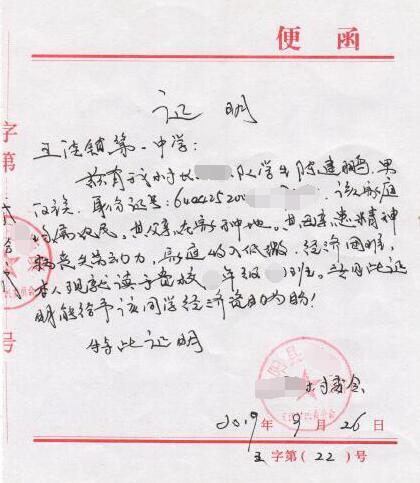 便函
证明
王洼镇第一中学:
兹有我村 队学生陈建鹏,男
汉族,身份证号:64042520 该家庭
均属农民,其父在家种地,其母患精神
病丧失劳动力,家庭收入低微,经济困难,
本人现就读于贵校 年级 班。
明能给予该同学经济资助为盼!
特此证明
村委会
2019年9月26日
王字第(22)号
字第
号